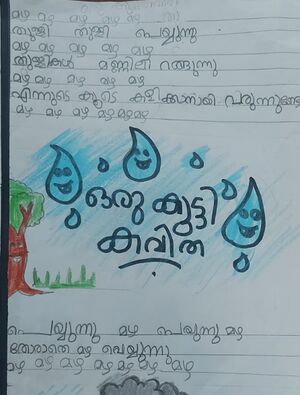 മഴ മഴ മഴ മഴ മഴ
തുള്ളി തുള്ളി പെയ്യുന്നു
മഴ മഴ മഴ മഴ മഴ
തുള്ളികൾ മണ്ണിൽ റങ്ങുന്നു
മഴ മഴ മഴ മഴ മഴ
എന്നുടെ കൂടെ കളിക്കാനായി വരുന്നുണ്ടേ
മഴ മഴ മഴ മഴമഴമഴ
ഒരു കുട്ടി
കവിത
പെയ്യുന്നു മഴ പെയുന്നു മഴ
തോരാതെ മഴ പെയ്യുന്നു
മഴ മഴ മഴ മഴ മഴ മഴ